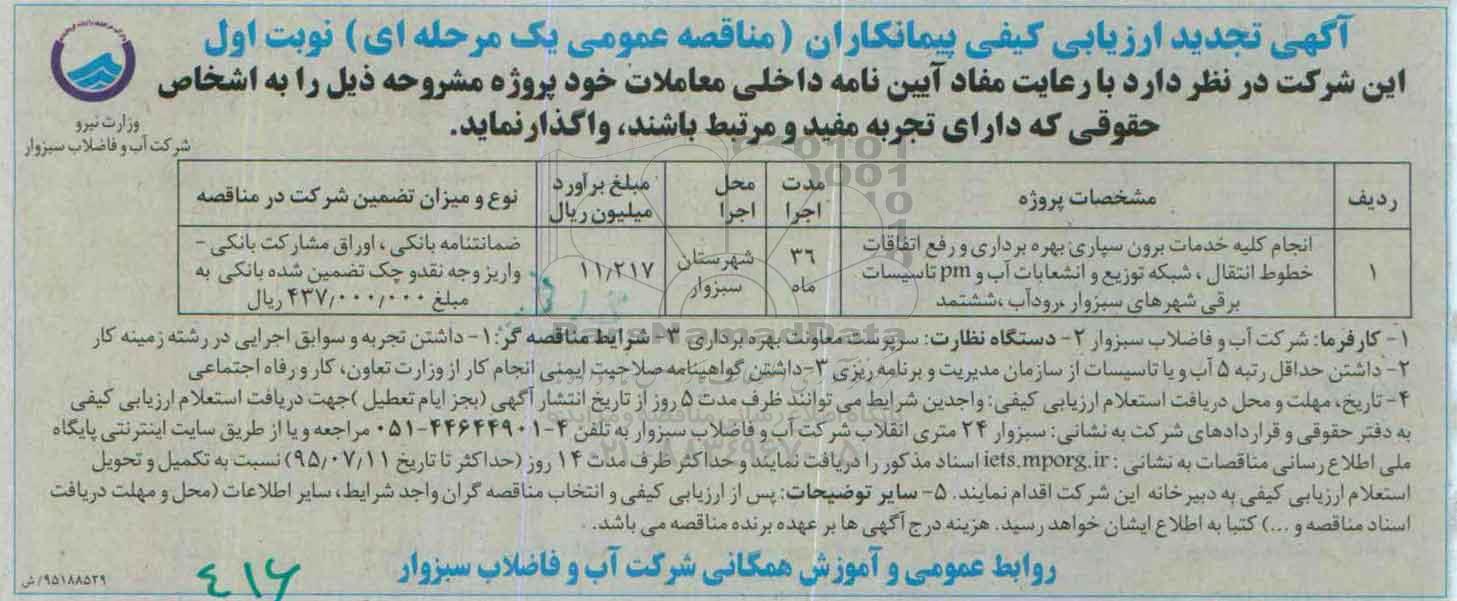 آگهی تجدید ارزیابی کیفی پیمانکاران (مناقصه عمومی یک مرحله ای) نوبت اول
این شرکت در نظر دارد با رعایت مفاد آیین نامه داخلی معاملات خود پروژه مشروحه ذیل را به اشخاص
حقوقی که دارای تجربه مفید و مرتبط باشند، واگذار نماید.
وزارت نیرو
شرکت آب و فاضلاب سبزوار
ردیف	مشخصات پروژه	مدت اجرا	محل اجرا	مبلغ برآورد میلیون ریال	نوع و میزان تضمین شرکت در مناقصه
۱	انجام کلیه خدمات برون سپاری بهره برداری و رفع اتفاقات خطوط انتقال ، شبکه توزیع و انشعابات آب و pm تاسیسات برقی شهرهای سبزوار ،رودآب ،ششتمد	۳۶ ماه	شهرستان سبزوار	۱۱٫۲۱۷	ضمانتنامه بانکی ، اوراق مشارکت بانکی - واریز وجه نقدو چک تضمین شده بانکی به مبلغ ۴۳۷٫۰۰۰٫۰۰۰ ریال
۱- کارفرما: شرکت آب و فاضلاب سبزوار ۲- دستگاه نظارت: سرپرست معاونت بهره برداری ۳- شرایط مناقصه گر: ۱- داشتن تجربه و سوابق اجرایی در رشته زمینه کار
۲- داشتن حداقل رتبه ۵ آب و یا تاسیسات از سازمان مدیریت و برنامه ریزی ۳-داشتن گواهینامه صلاحیت ایمنی انجام کار از وزارت تعاون، کار و رفاه اجتماعی
۴- تاریخ، مهلت و محل دریافت استعلام ارزیابی کیفی: واجدین شرایط می توانند ظرف مدت ۵ روز از تاریخ انتشار آگهی (بجز ایام تعطیل )جهت دریافت استعلام ارزیابی کیفی
به دفتر حقوقی و قراردادهای شرکت به نشانی: سبزوار ۲۴ متری انقلاب شرکت آب و فاضلاب سبزوار به تلفن ۴-۴۴۶۴۴۹۰۱-۰۵۱ مراجعه و یا از طریق سایت اینترنتی پایگاه
ملی اطلاع رسانی مناقصات به نشانی : iets.mporg.ir اسناد مذکور را دریافت نمایند و حداکثر ظرف مدت ۱۴ روز (حداکثر تا تاریخ ۹۵/۰۷/۱۱) نسبت به تکمیل و تحویل
استعلام ارزیابی کیفی به دبیرخانه این شرکت اقدام نمایند. ۵- سایر توضیحات: پس از ارزیابی کیفی و انتخاب مناقصه گران واجد شرایط، سایر اطلاعات (محل و مهلت دریافت
اسناد مناقصه و ...) کتبا به اطلاع ایشان خواهد رسید. هزینه درج آگهی ها بر عهده برنده مناقصه می باشد.
روابط عمومی و آموزش همگانی شرکت آب و فاضلاب سبزوار
۹۵۱۸۸۵۲۹/ش
۴۱۶
ParsNamadData